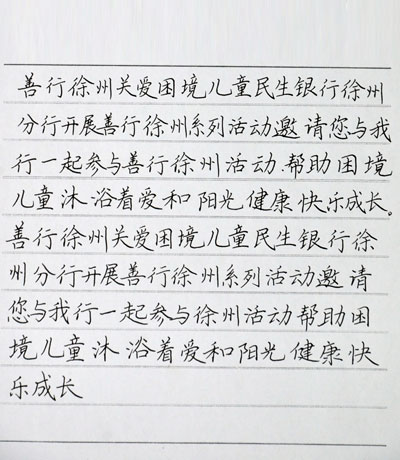 善行徐州关爱困境儿童民生银行徐州
分行开展善行徐州系列活动邀请您与我
行一起参与善行徐州活动.帮助困境
儿童沐浴着爱和阳光健康快乐成长。
善行徐州关爱困境儿童民生银行徐
州分行开展善行徐州系列活动邀请
您与我行一起参与徐州活动帮助困
境儿童沐浴着爱和阳光健康快
乐成长